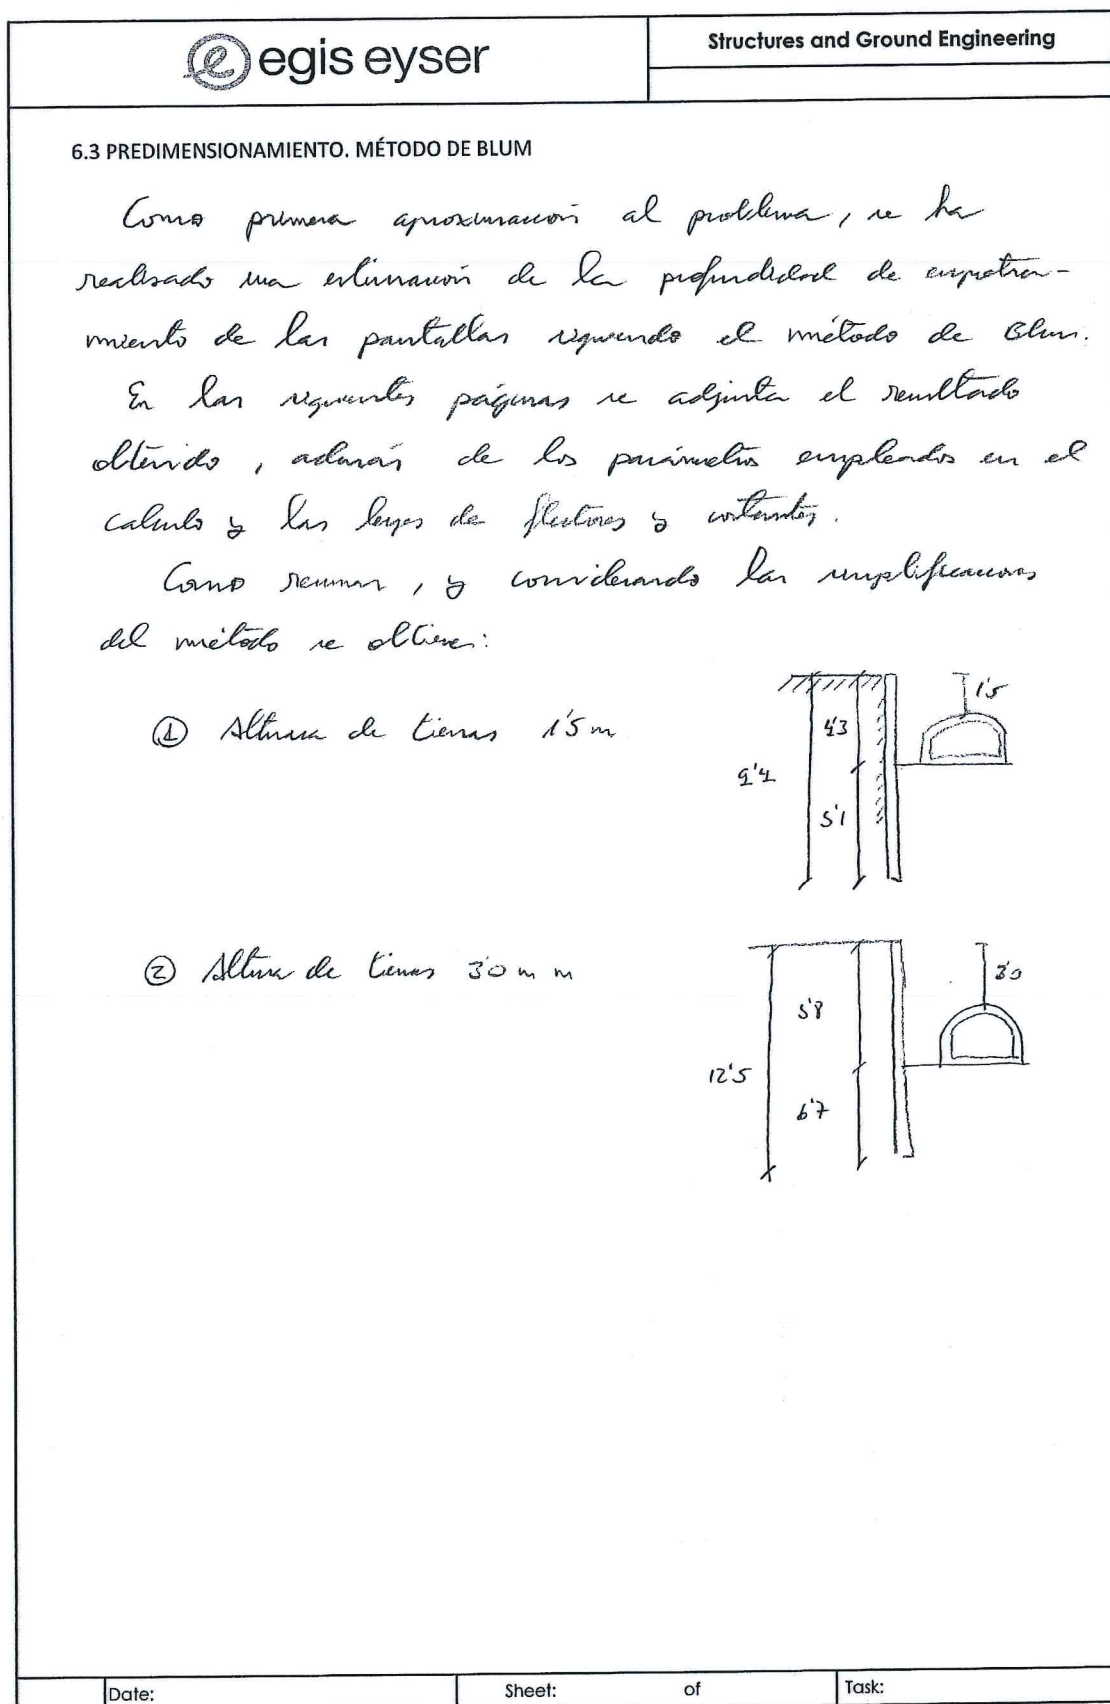 egis eyser
Structures and Ground Engineering
6.3 PREDIMENSIONAMIENTO. MÉTODO DE BLUM
Como primera aproximación al problema, se ha
realizado una estimación de la profundidad de empotra-
miento de las pantallas siguiendo el método de Blum.
En las siguientes páginas se adjunta el resultado
obtenido, además de los parámetros empleados en el
calculo y las leyes de flectores y cortantes.
Como resumen, y considerando las simplificaciones
del método se obtiene:
① Altura de tierras 1'5 m
9'4
4'3
5'1
1'5
② Altura de tierras 3'0 m m
12'5
5'8
6'7
3'0
Date:
Sheet: of
Task: